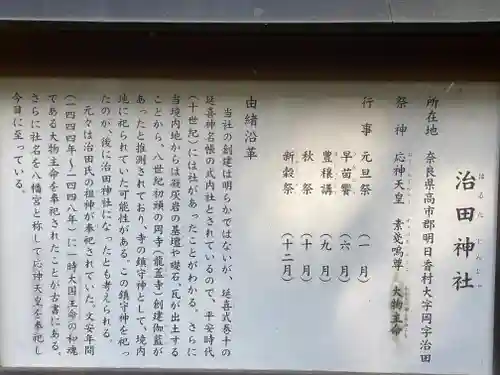 治田神社
はるたじんじゃ
所在地　奈良県高市郡明日香村大字岡字治田
祭神　応神天皇　素戔嗚尊　大物主命
行事　元旦祭　（一月）
早苗饗　（六月）
豊穣講　（九月）
秋祭　（十月）
新穀祭　（十二月）
由緒沿革
当社の創建は明らかではないが、延喜式巻十の
延喜神名帳の式内社とされているので、平安時代
（十世紀）には社があったことがわかる。さらに
当境内地からは凝灰岩の基壇や礎石、瓦が出土する
ことから、八世紀初頭の岡寺（龍蓋寺）創建伽藍が
あったと推測されており、寺の鎮守神として、境内
地に祀られていた可能性がある。この鎮守神を祀っ
たのが、後に治田神社になったとも考えられる。
元々は治田氏の祖神が奉祀されていた。文安年間
（一四四四年～一四四八年）に一時大国主命の和魂
である大物主命を奉祀されたことが古書にある。
さらに社名を八幡宮と称して応神天皇を奉祀し
今日に至っている。